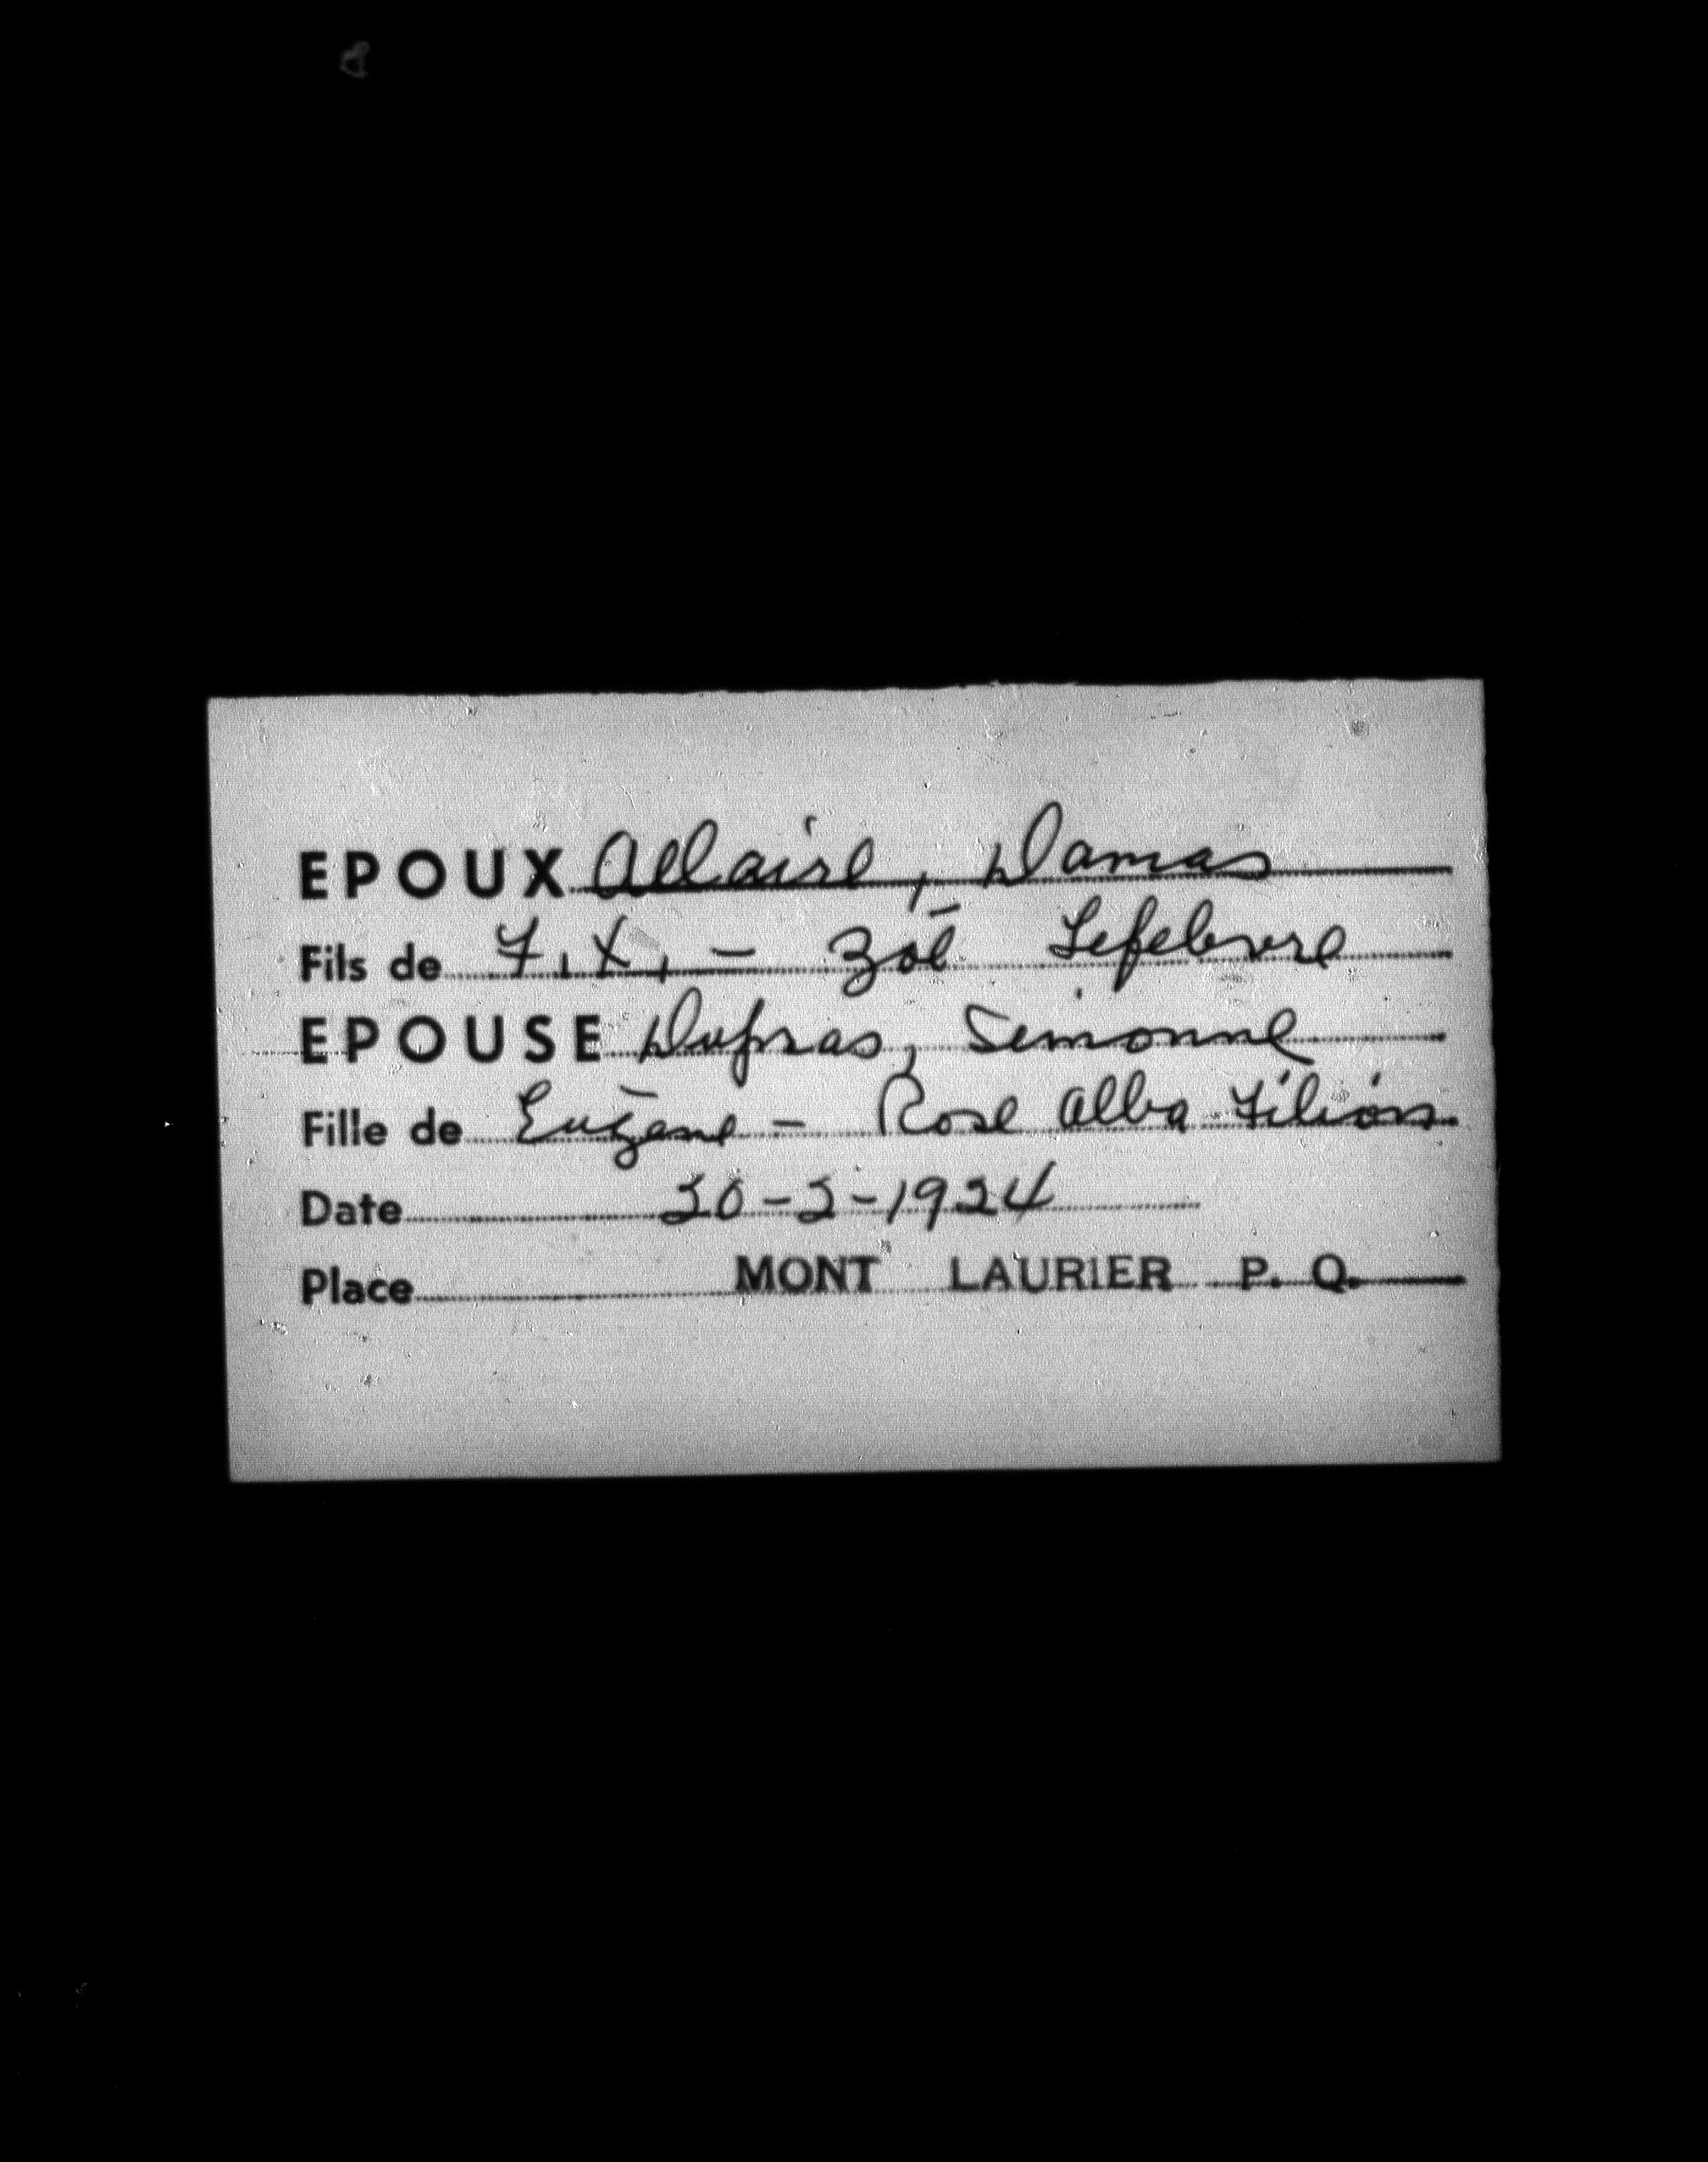 EPOUX Allaire, Damas
Fils de F. X. - Zoé Lefebvre
EPOUSE Dupras, Simonne
Fille de Eugène - Rose Alba Filion
Date 20-2-1924
Place MONT LAURIER P. Q.